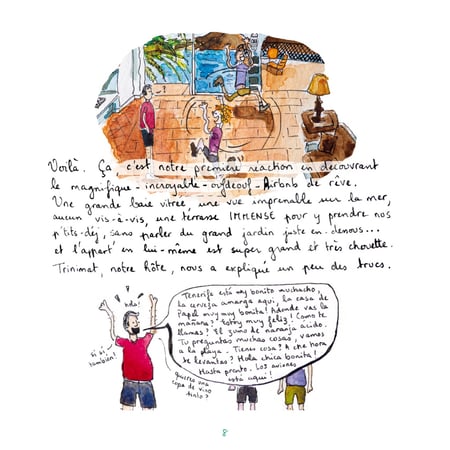 Voilà. Ça, c'est notre première reaction en découvrant
le magnifique-incroyable-oufdeouf-Airbnb de rêve.
Une grande baie vitrée, une vue imprenable sur la mer,
aucun vis-à-vis, une terrasse IMMENSE pour y prendre nos
p'tits-déj, sans parler du grand jardin juste en-dessous...
et l'appart' en lui-même est super grand et très chouette.
Trinimat, notre hôte, nous a expliqué un peu des trucs.
hola!
Tenerife está muy bonito muchacho,
la cerveza amarga aqui, la casa de
Papel muy muy bonita! Adonde vas la
mañana? Estoy muy feliz! Como te
llamas? El zumo de naranja acido.
Tu preguntas muchas cosas, vamos
a la playa. Tienes cosa? A che hora
te levantas? Hola chica bonita!
Hasta pronto. Los aviones
está aqui!
si si,
también!
quieres una
copa de vino
tinto?
8